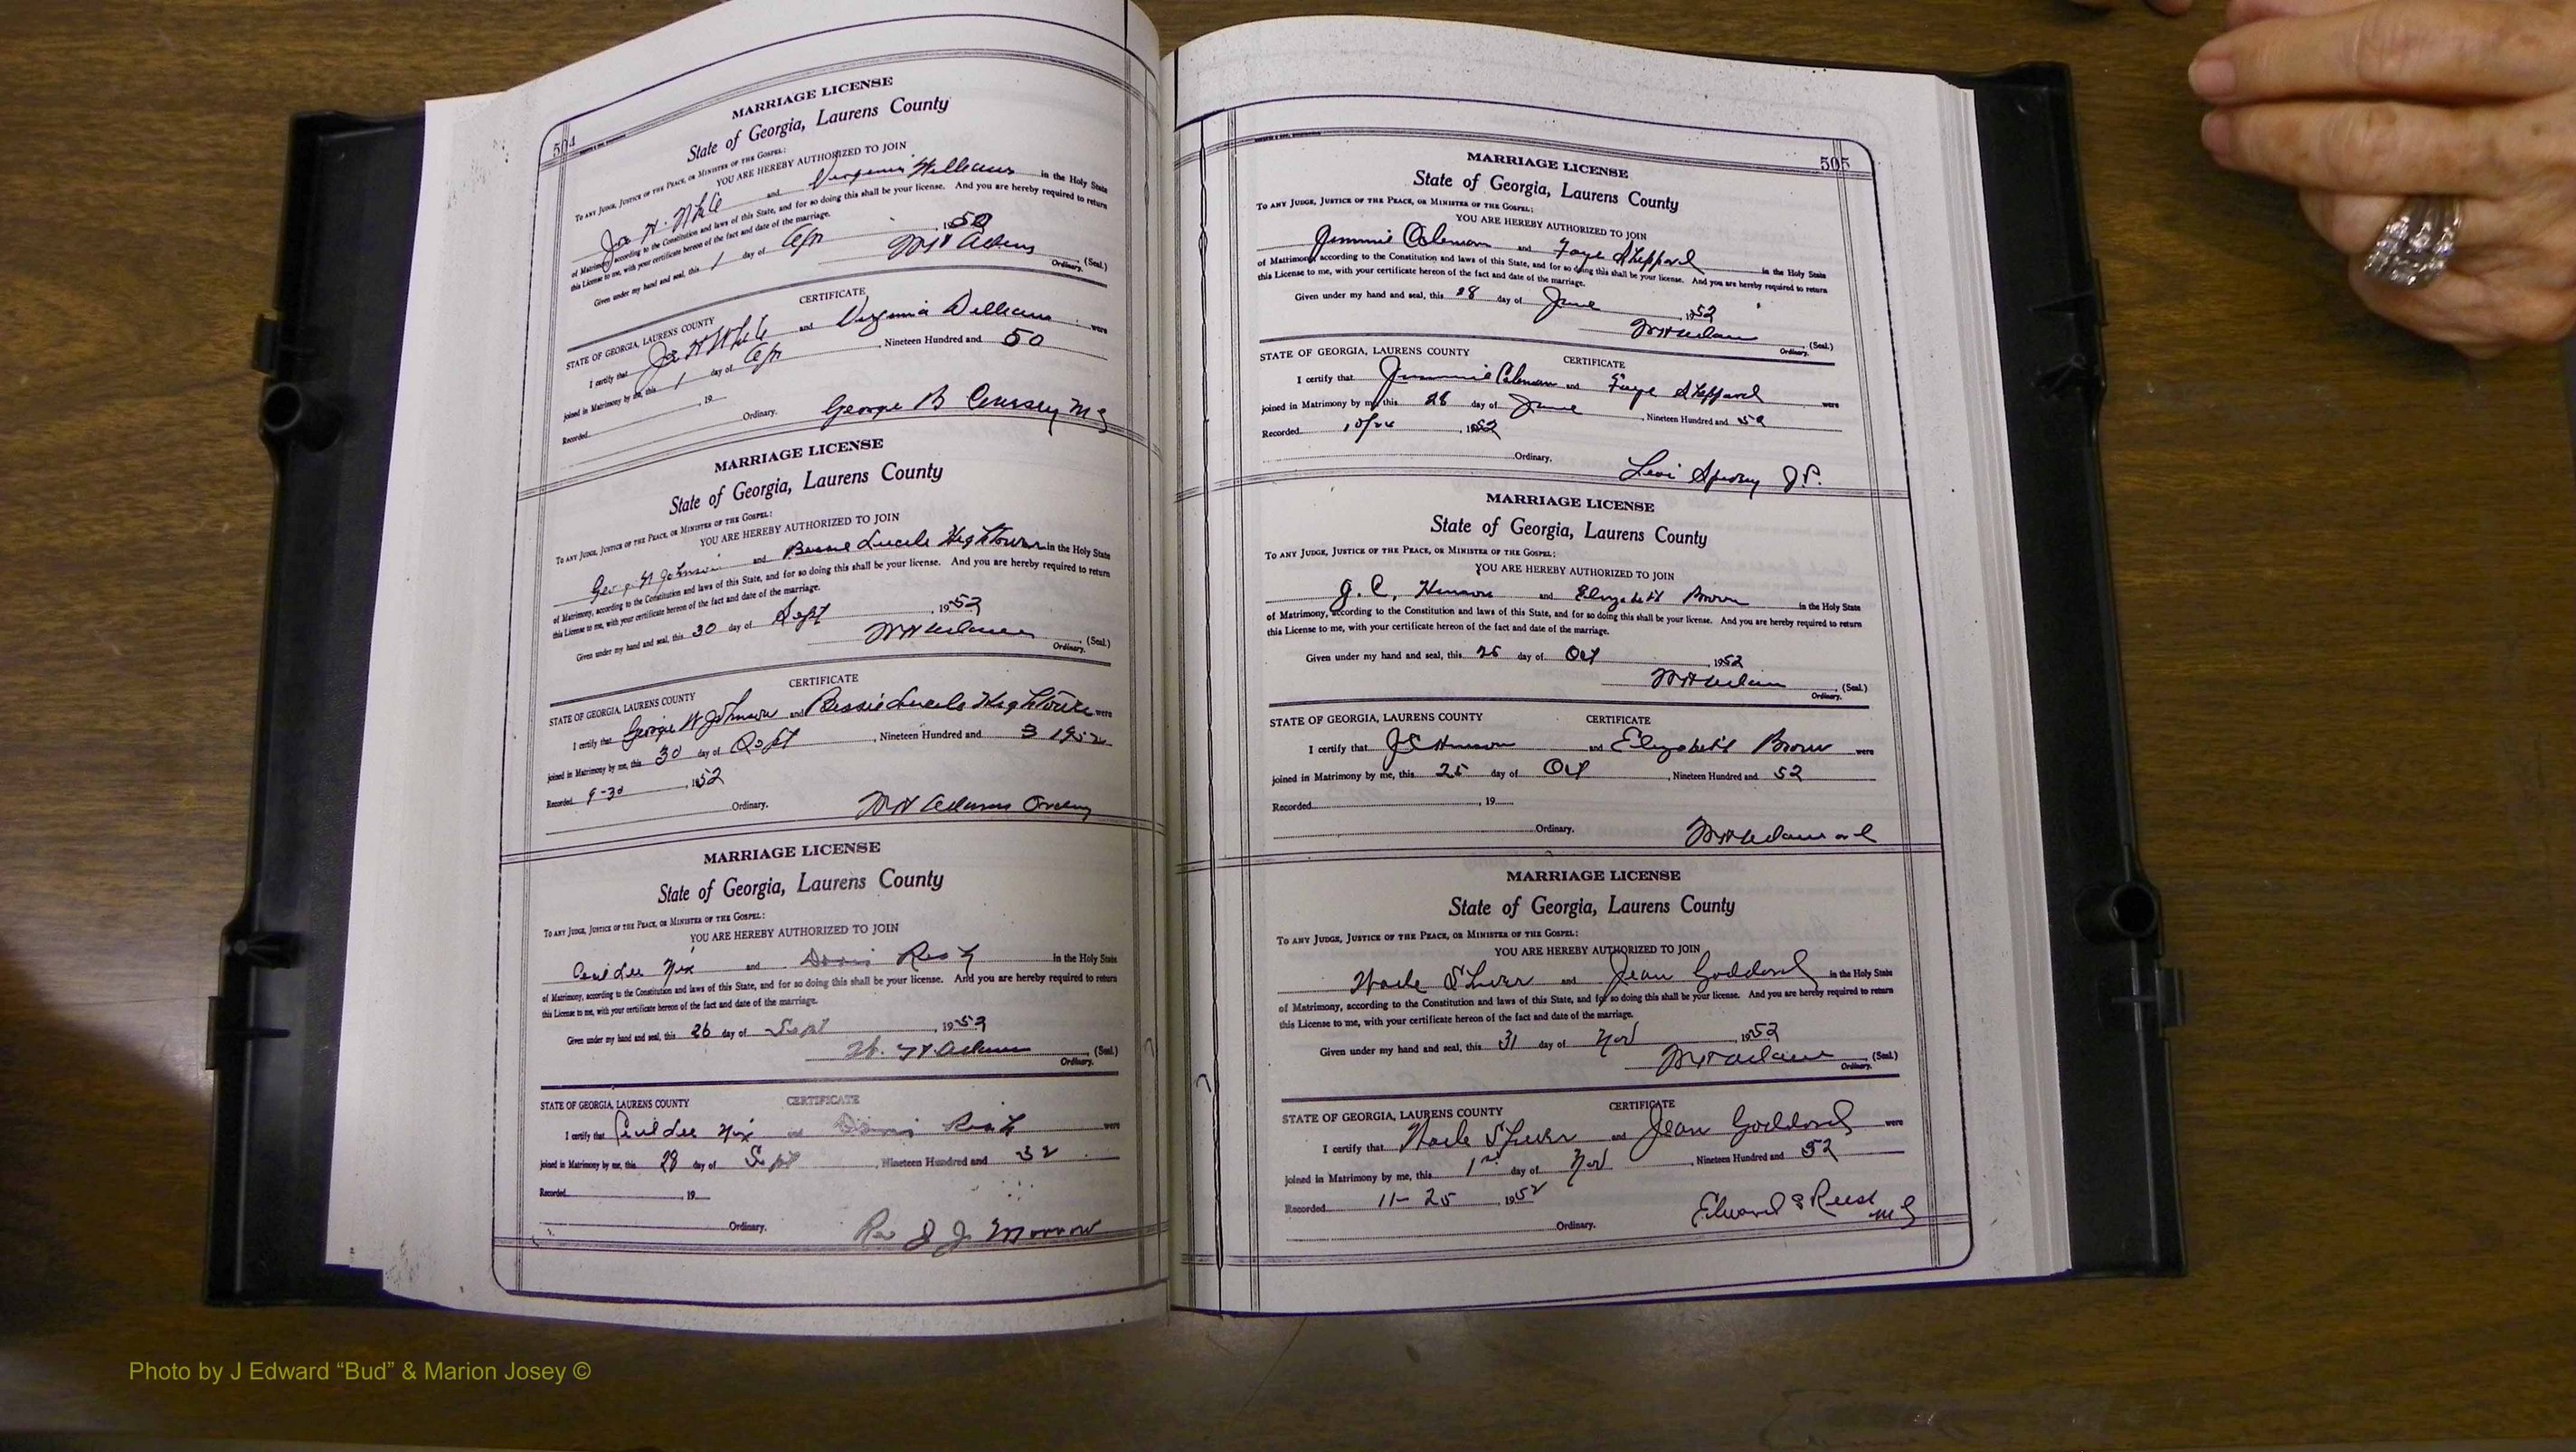 564
MARRIAGE LICENSE
State of Georgia, Laurens County
TO ANY JUDGE, JUSTICE OF THE PEACE, OR MINISTER OF THE GOSPEL:
YOU ARE HEREBY AUTHORIZED TO JOIN
Joe H. White and Virginia Williams in the Holy State
of Matrimony according to the Constitution and laws of this State, and for so doing this shall be your license. And you are hereby required to return
this License to me, with your certificate hereon of the fact and date of the marriage.
Given under my hand and seal, this 1 day of Apr, 1950
W H Adams (Seal.)
Ordinary.
CERTIFICATE
STATE OF GEORGIA, LAURENS COUNTY
I certify that Joe H White and Virginia Williams were
joined in Matrimony by me, this 1 day of Apr, Nineteen Hundred and 50
Recorded, 19
Ordinary. George B Coursey M G
MARRIAGE LICENSE
State of Georgia, Laurens County
TO ANY JUDGE, JUSTICE OF THE PEACE, OR MINISTER OF THE GOSPEL:
YOU ARE HEREBY AUTHORIZED TO JOIN
George W Johnson and Bessie Lucile Hightower in the Holy State
of Matrimony, according to the Constitution and laws of this State, and for so doing this shall be your license. And you are hereby required to return
this License to me, with your certificate hereon of the fact and date of the marriage.
Given under my hand and seal, this 30 day of Sept, 1952
W H Adams (Seal.)
Ordinary.
CERTIFICATE
STATE OF GEORGIA, LAURENS COUNTY
I certify that George W Johnson and Bessie Lucile Hightower were
joined in Matrimony by me, this 30 day of Sept, Nineteen Hundred and 3 1952
Recorded 9-30, 1952
Ordinary. W H Adams Ordinary
MARRIAGE LICENSE
State of Georgia, Laurens County
TO ANY JUDGE, JUSTICE OF THE PEACE, OR MINISTER OF THE GOSPEL:
YOU ARE HEREBY AUTHORIZED TO JOIN
Cecil Lee Nix and Doris in the Holy State
of Matrimony, according to the Constitution and laws of this State, and for so doing this shall be your license. And you are hereby required to return
this License to me, with your certificate hereon of the fact and date of the marriage.
Given under my hand and seal, this 26 day of Sept, 1952
W. H Adams (Seal)
Ordinary.
CERTIFICATE
STATE OF GEORGIA, LAURENS COUNTY
I certify that Cecil Lee Nix and Doris were
joined in Matrimony by me, this 28 day of Sept, Nineteen Hundred and 52
Recorded, 19
Ordinary. Rev J. J. Morrow
505
MARRIAGE LICENSE
State of Georgia, Laurens County
TO ANY JUDGE, JUSTICE OF THE PEACE, OR MINISTER OF THE GOSPEL:
YOU ARE HEREBY AUTHORIZED TO JOIN
Jimmie Coleman and Faye Sheppard in the Holy State
of Matrimony according to the Constitution and laws of this State, and for so doing this shall be your license. And you are hereby required to return
this License to me, with your certificate hereon of the fact and date of the marriage.
Given under my hand and seal, this 28 day of June, 1952
W H Adams (Seal.)
Ordinary.
CERTIFICATE
STATE OF GEORGIA, LAURENS COUNTY
I certify that Jimmie Coleman and Faye Sheppard were
joined in Matrimony by me, this 28 day of June, Nineteen Hundred and 52
Recorded 10/24, 1952
Ordinary. Levi J.P.
MARRIAGE LICENSE
State of Georgia, Laurens County
TO ANY JUDGE, JUSTICE OF THE PEACE, OR MINISTER OF THE GOSPEL:
YOU ARE HEREBY AUTHORIZED TO JOIN
J. C. Hinson and Elizabeth Brown in the Holy State
of Matrimony, according to the Constitution and laws of this State, and for so doing this shall be your license. And you are hereby required to return
this License to me, with your certificate hereon of the fact and date of the marriage.
Given under my hand and seal, this 25 day of Oct, 1952
W H Adams (Seal.)
Ordinary.
CERTIFICATE
STATE OF GEORGIA, LAURENS COUNTY
I certify that J C Hinson and Elizabeth Brown were
joined in Matrimony by me, this 25 day of Oct, Nineteen Hundred and 52
Recorded, 19
Ordinary. W H Adams
MARRIAGE LICENSE
State of Georgia, Laurens County
TO ANY JUDGE, JUSTICE OF THE PEACE, OR MINISTER OF THE GOSPEL:
YOU ARE HEREBY AUTHORIZED TO JOIN
Jean Goddard in the Holy State
of Matrimony, according to the Constitution and laws of this State, and for so doing this shall be your license. And you are hereby required to return
this License to me, with your certificate hereon of the fact and date of the marriage.
Given under my hand and seal, this 31 day of Nov, 1952
W H Adams (Seal.)
Ordinary.
CERTIFICATE
STATE OF GEORGIA, LAURENS COUNTY
I certify that and Jean Goddard were
joined in Matrimony by me, this 1st day of Nov, Nineteen Hundred and 52
Recorded 11-25, 1952
Ordinary. Edward S Reese M G
Photo by J Edward “Bud” & Marion Josey ©